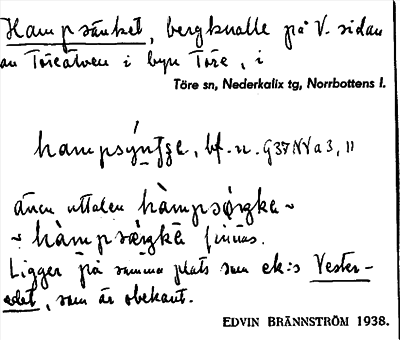 Hampsänket, bergknalle på V. sidan
av Töreälven i byn Töre, i
Töre sn, Nederkalix tg, Norrbottens l.
hampsýntʒe, bf. n. G37NVa3, 11
även uttalen hàmpsørgka ~
~ hàmpsærgkä finnas.
Ligger på samma plats som ek:s Vester-
edet, som är obekant.
EDVIN BRÄNNSTRÖM 1938.